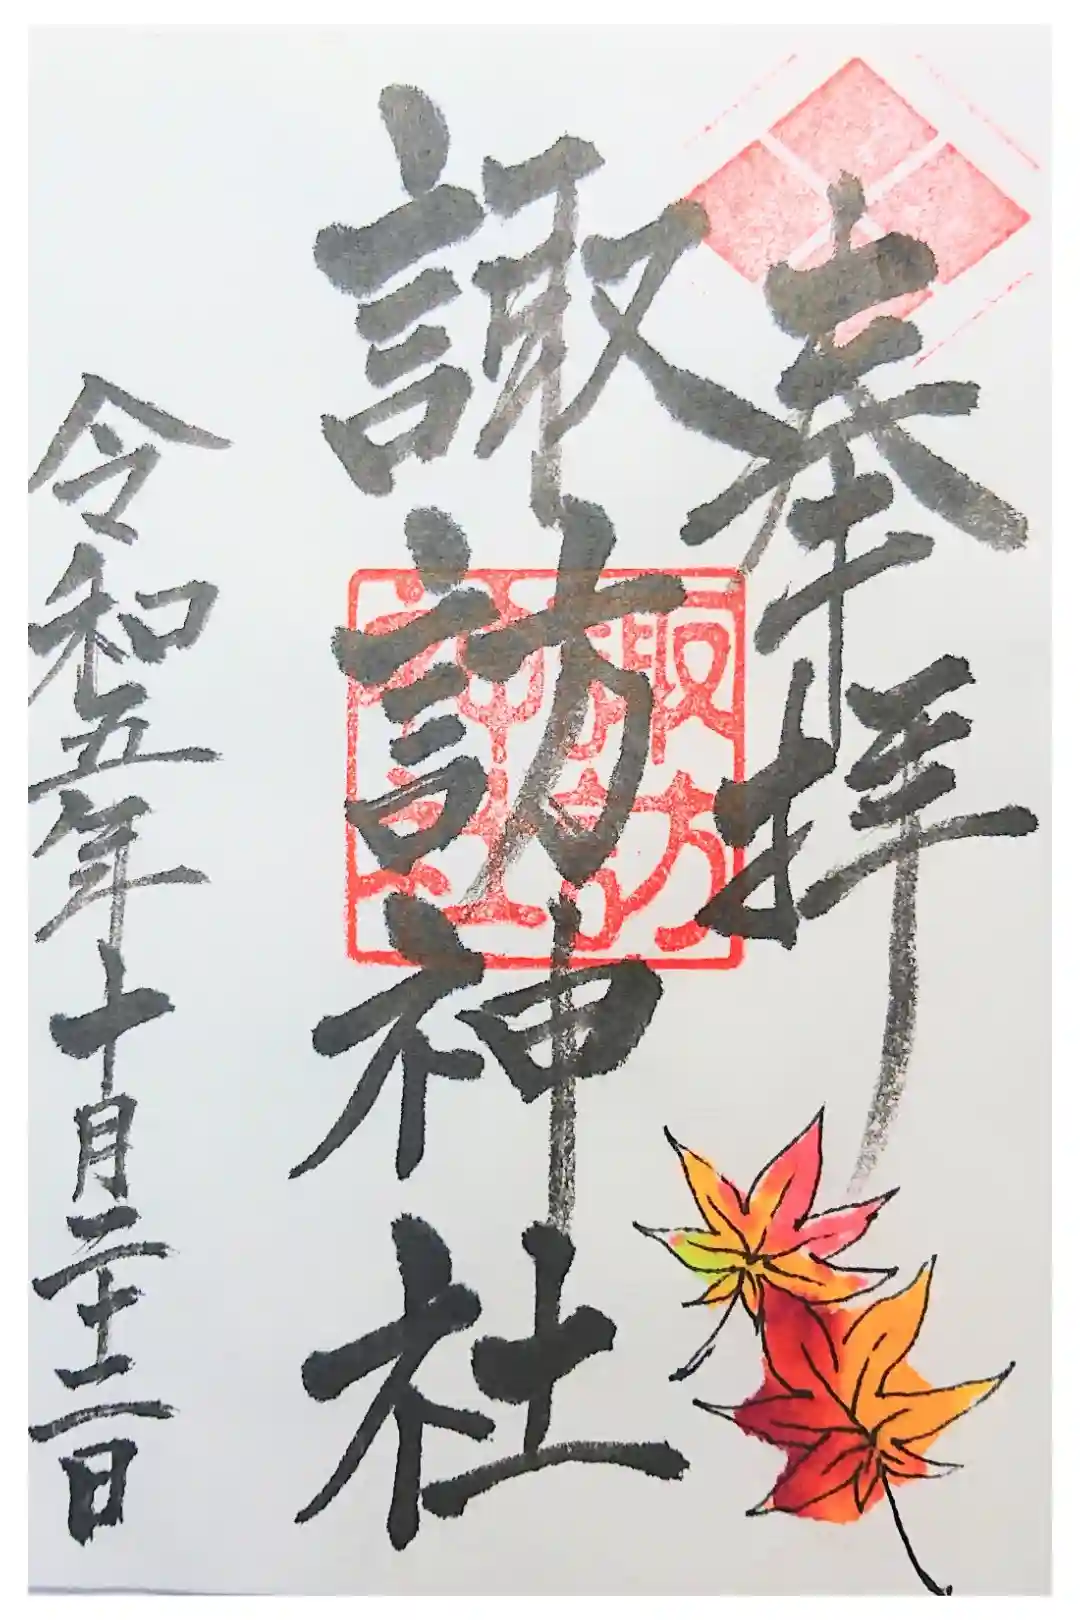 奉拝
諏訪神社
諏訪
神社
令和五年十月二十二日